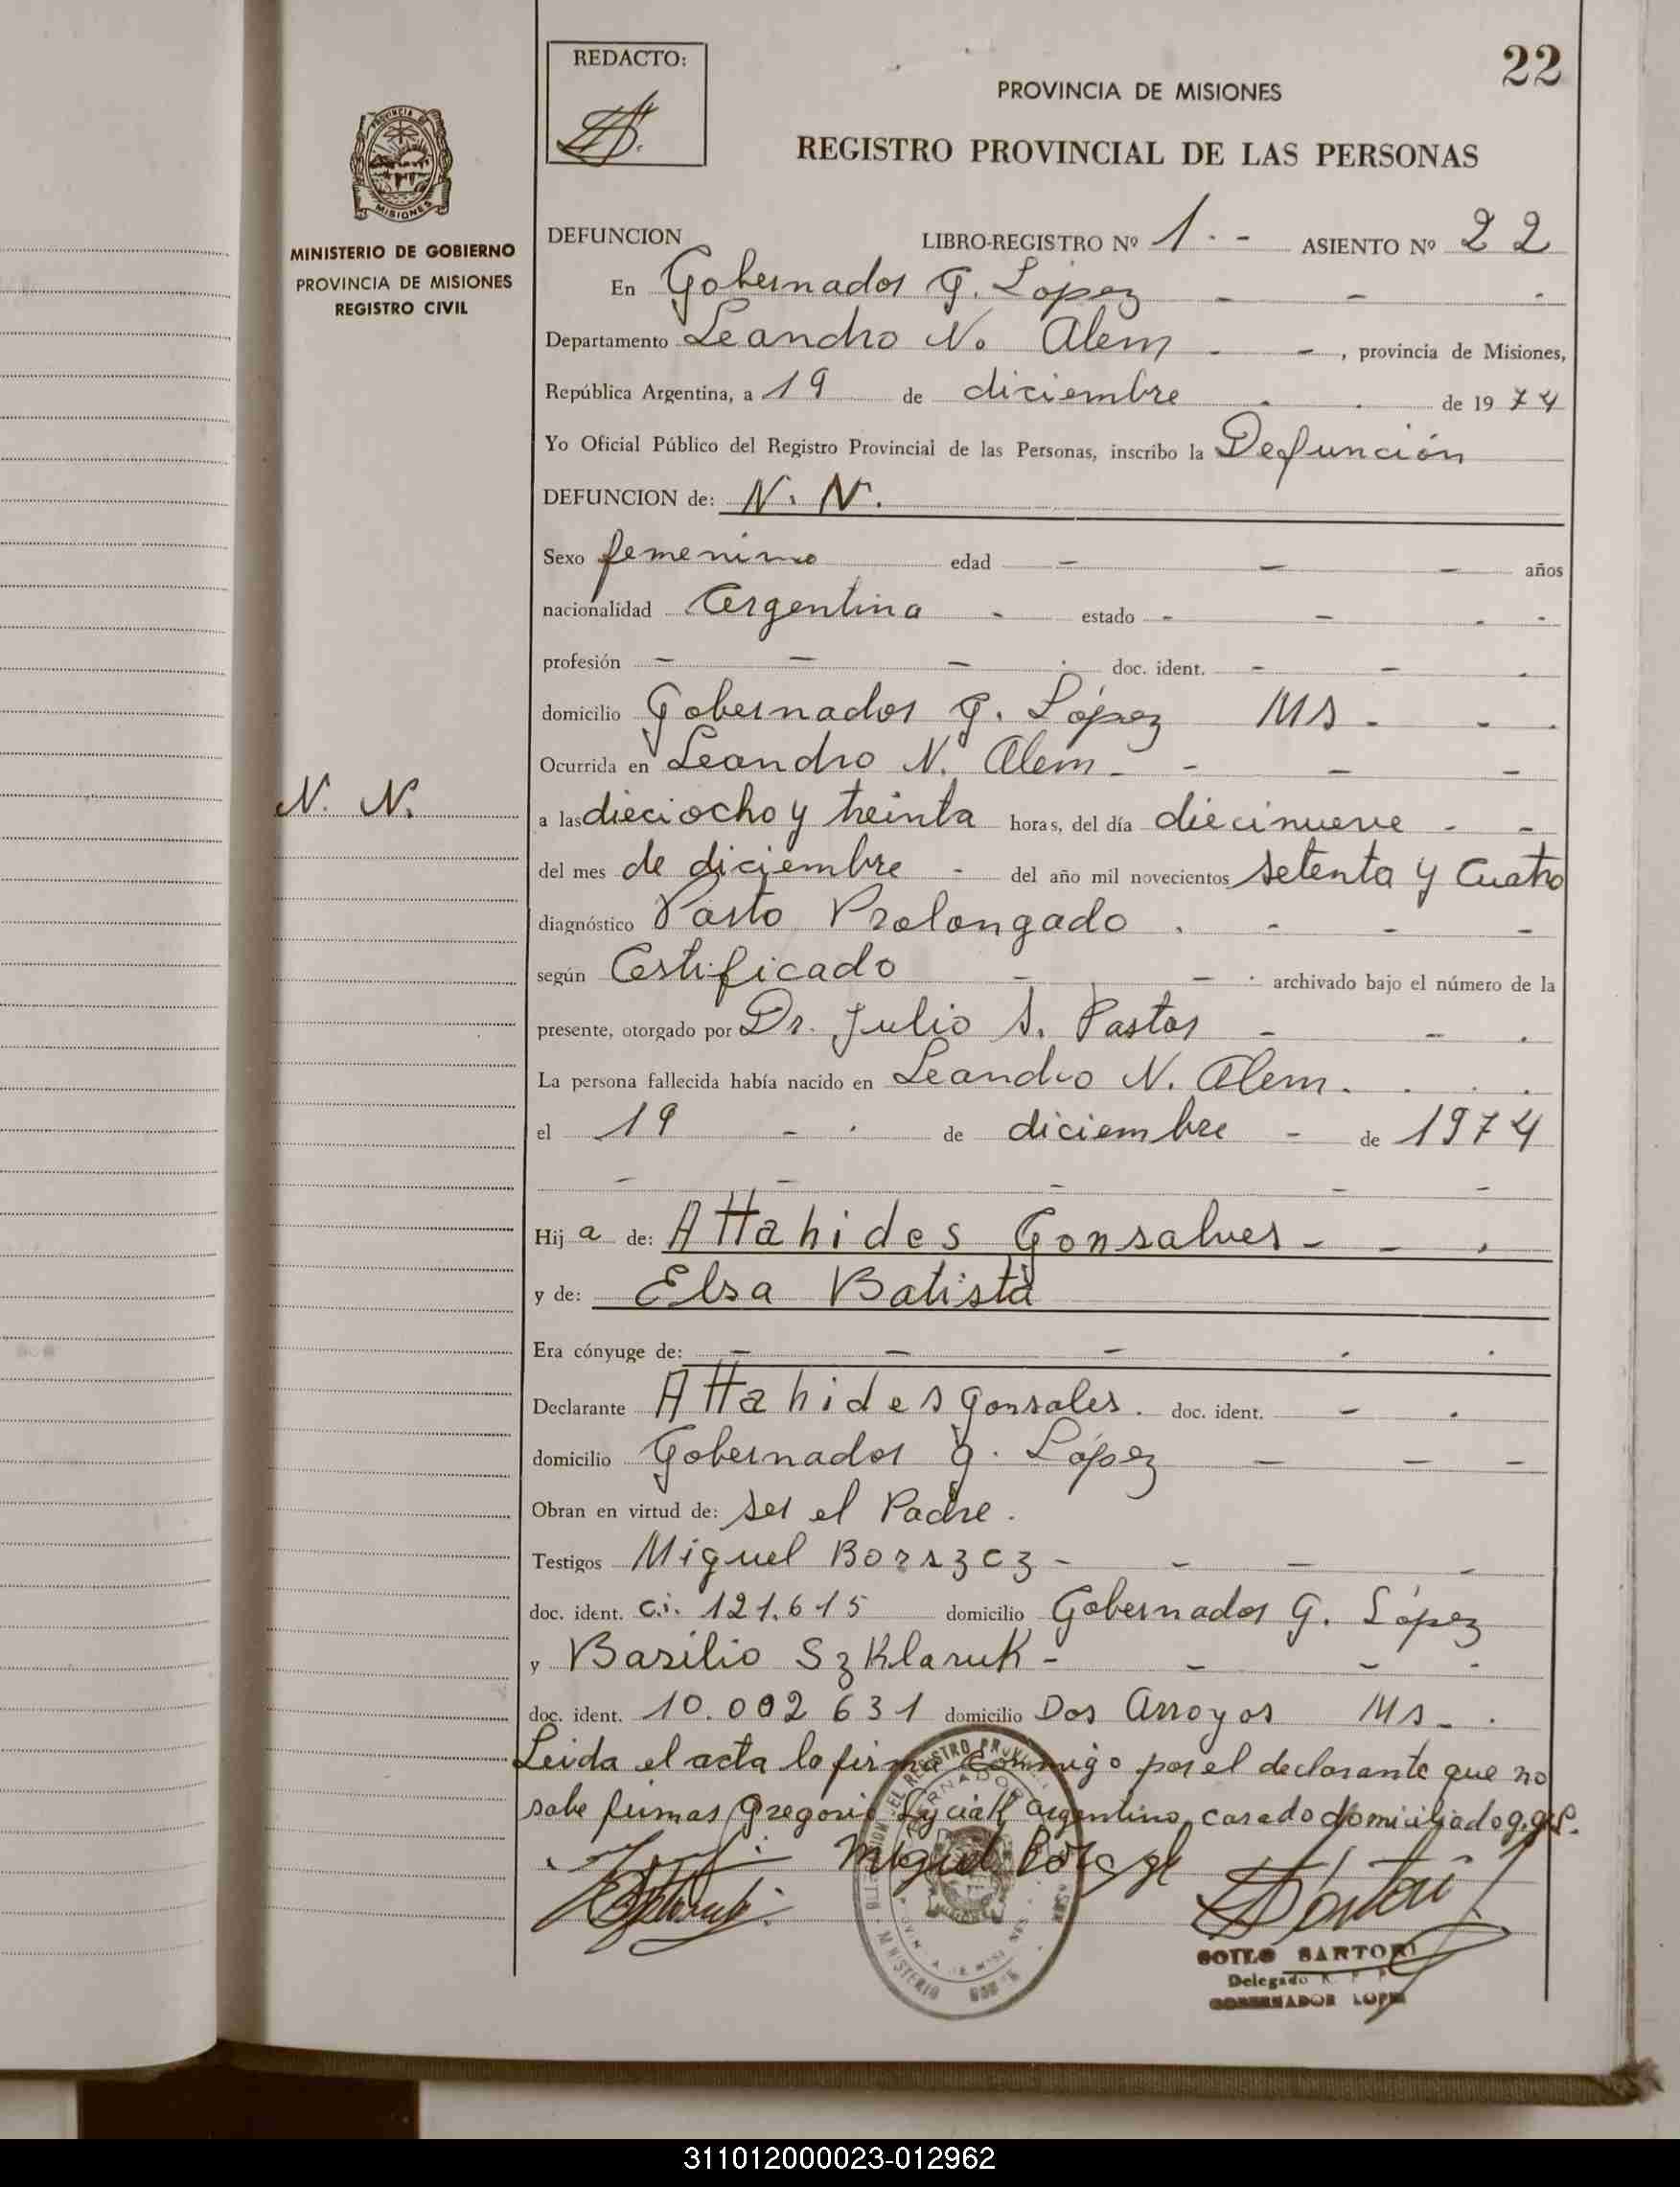 REDACTO:
22
PROVINCIA DE MISIONES
REGISTRO PROVINCIAL DE LAS PERSONAS
MISIONES
MINISTERIO DE GOBIERNO
PROVINCIA DE MISIONES
REGISTRO CIVIL
DEFUNCION LIBRO-REGISTRO Nº 1 . - ASIENTO Nº 22
En Gobernador G. López - - -
Departamento Leandro N. Alem - - , provincia de Misiones,
República Argentina, a 19 de diciembre . . de 1974
Yo Oficial Público del Registro Provincial de las Personas, inscribo la Defunción
DEFUNCION de: N. N.
Sexo femenino edad - - - años
nacionalidad Argentina - estado - - - -
profesión - - - . doc. ident. - - -
domicilio Gobernador G. López Ms. - .
Ocurrida en Leandro N. Alem - - - -
N. N.
a las dieciocho y treinta horas, del día diecinueve - -
del mes de diciembre - del año mil novecientos setenta y cuatro
diagnóstico Parto Prolongado . - - -
según Certificado - - . archivado bajo el número de la
presente, otorgado por Dr. Julio S. Pastor - - .
La persona fallecida había nacido en Leandro N. Alem . . . .
el 19 - . de diciembre - de 1974
- - - - -
Hija de: Attahides Gonsalves - - .
y de: Elsa Batista
Era cónyuge de: - - - . .
Declarante Attahides Gonsales . doc. ident. - .
domicilio Gobernador G. López - - -
Obran en virtud de: ser el Padre .
Testigos Miguel Borszcz - - - -
doc. ident. C.i. 121.615 domicilio Gobernador G. López
y Basilio Szklaruk - - - -
doc. ident. 10.002 631 domicilio Dos Arroyos Ms - .
Leida el acta la firma conmigo por el declarante que no
sabe firmar Gregorio argentino, casado domiciliado
Miguel
SOTLO SARTORI
Delegado R. P. P.
GOBERNADOR LOPEZ
311012000023-012962